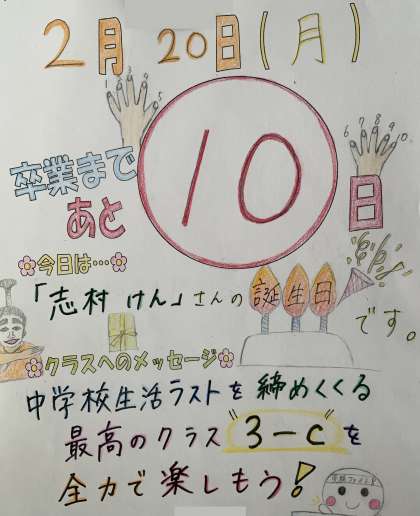 2月20日(月)
1 2 3 4 5
6 7 8 9 10
卒業まで
あと
10日
今日は…
「志村 けん」さんの誕生日
です。
クラスへのメッセージ
中学校生活ラストを締めくくる
最高のクラス"3-C"を
全力で楽しもう!